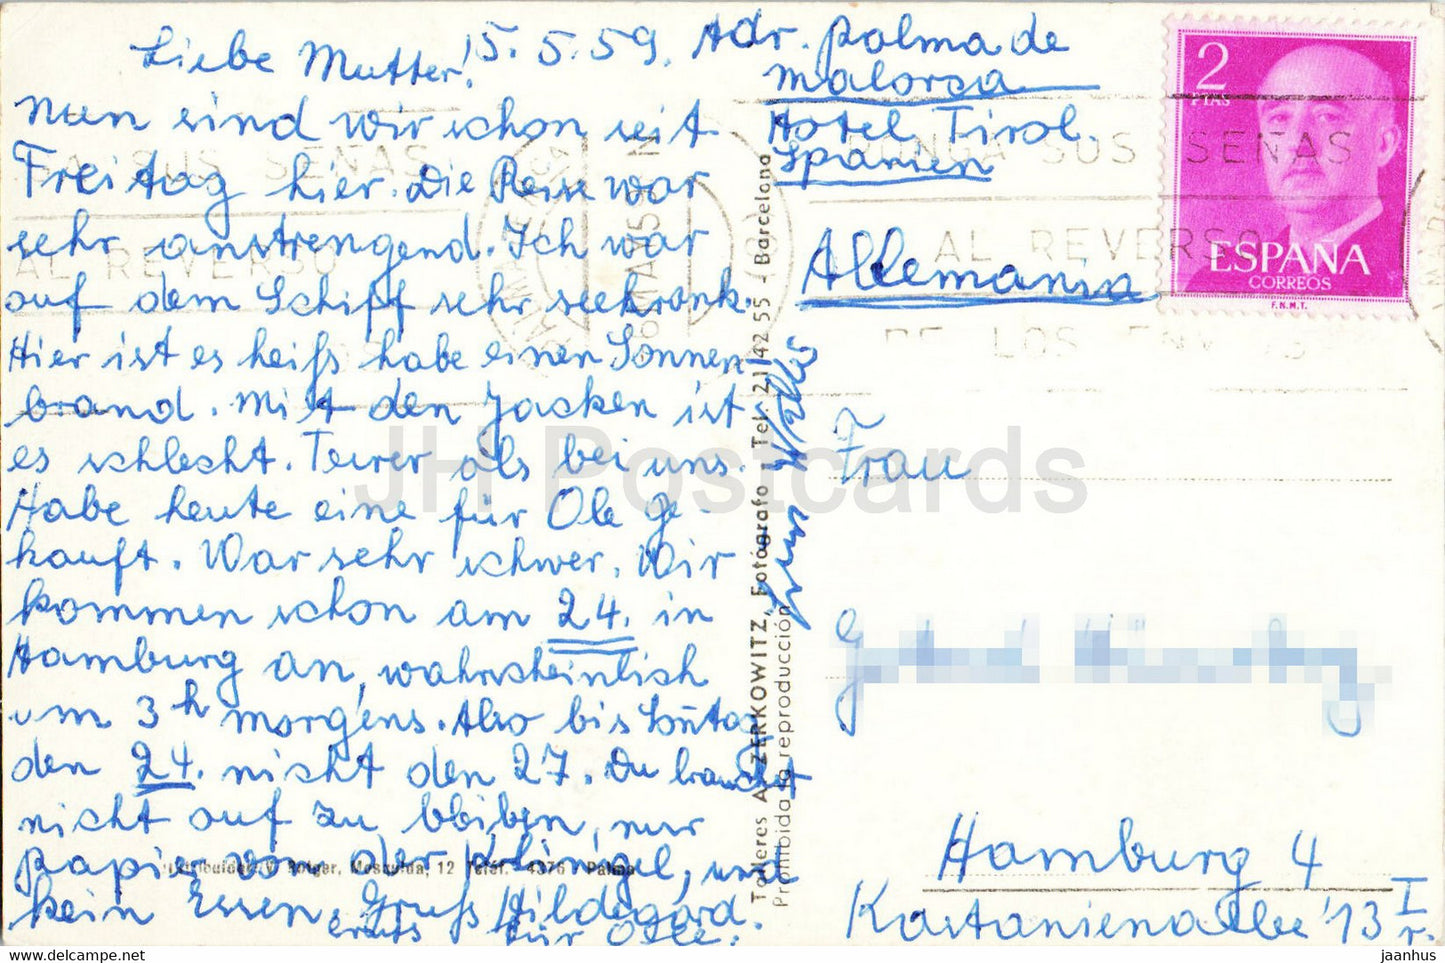 Liebe Mutter! 15.5.59. Adr. Palma de
Malorca
Hotel Tirol.
Spanien
Allemania
Nun sind wir schon seit
Freitag hier. Die Reise war
sehr anstrengend. Ich war
auf dem Schiff sehr seekrank.
Hier ist es heiß habe einen Sonnen
brand. Mit den Jacken ist
es schlecht. Teurer als bei uns.
Habe heute eine für Ole ge-
kauft. War sehr schwer. Wir
kommen schon am 24. in
Hamburg an, wahrscheinlich
um 3h morgens. Also bis Sonntag
den 24. nicht den 27. Du brauchst
nicht auf zu bleiben, nur
Papier von der Klingel, und
kein Essen. Gruß Hildegard.
für
2
PTAS
ESPAÑA
CORREOS
F.N.M.T.
PONGA SUS SEÑAS
AL REVERSO
DE LOS ENV
SUS SEÑAS
AL REVERSO
Talleres A. ZERKOWITZ, Fotógrafo - Tel. 21 42 55 - Barcelona
Prohibida la reproducción
12 Teléf. 4376 Palma
Frau
Hamburg 4
Kastanienallee 13 I
r.
JH Postcards
jaanhus